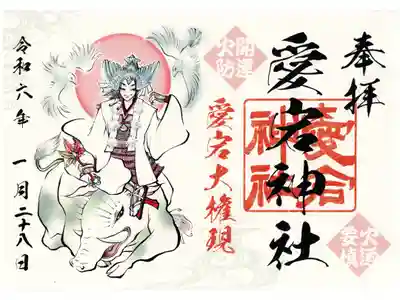 奉拝
開運
火防
愛宕神社
愛宕
神社
火迺
要慎
愛宕大権現
令和六年 一月二十八日